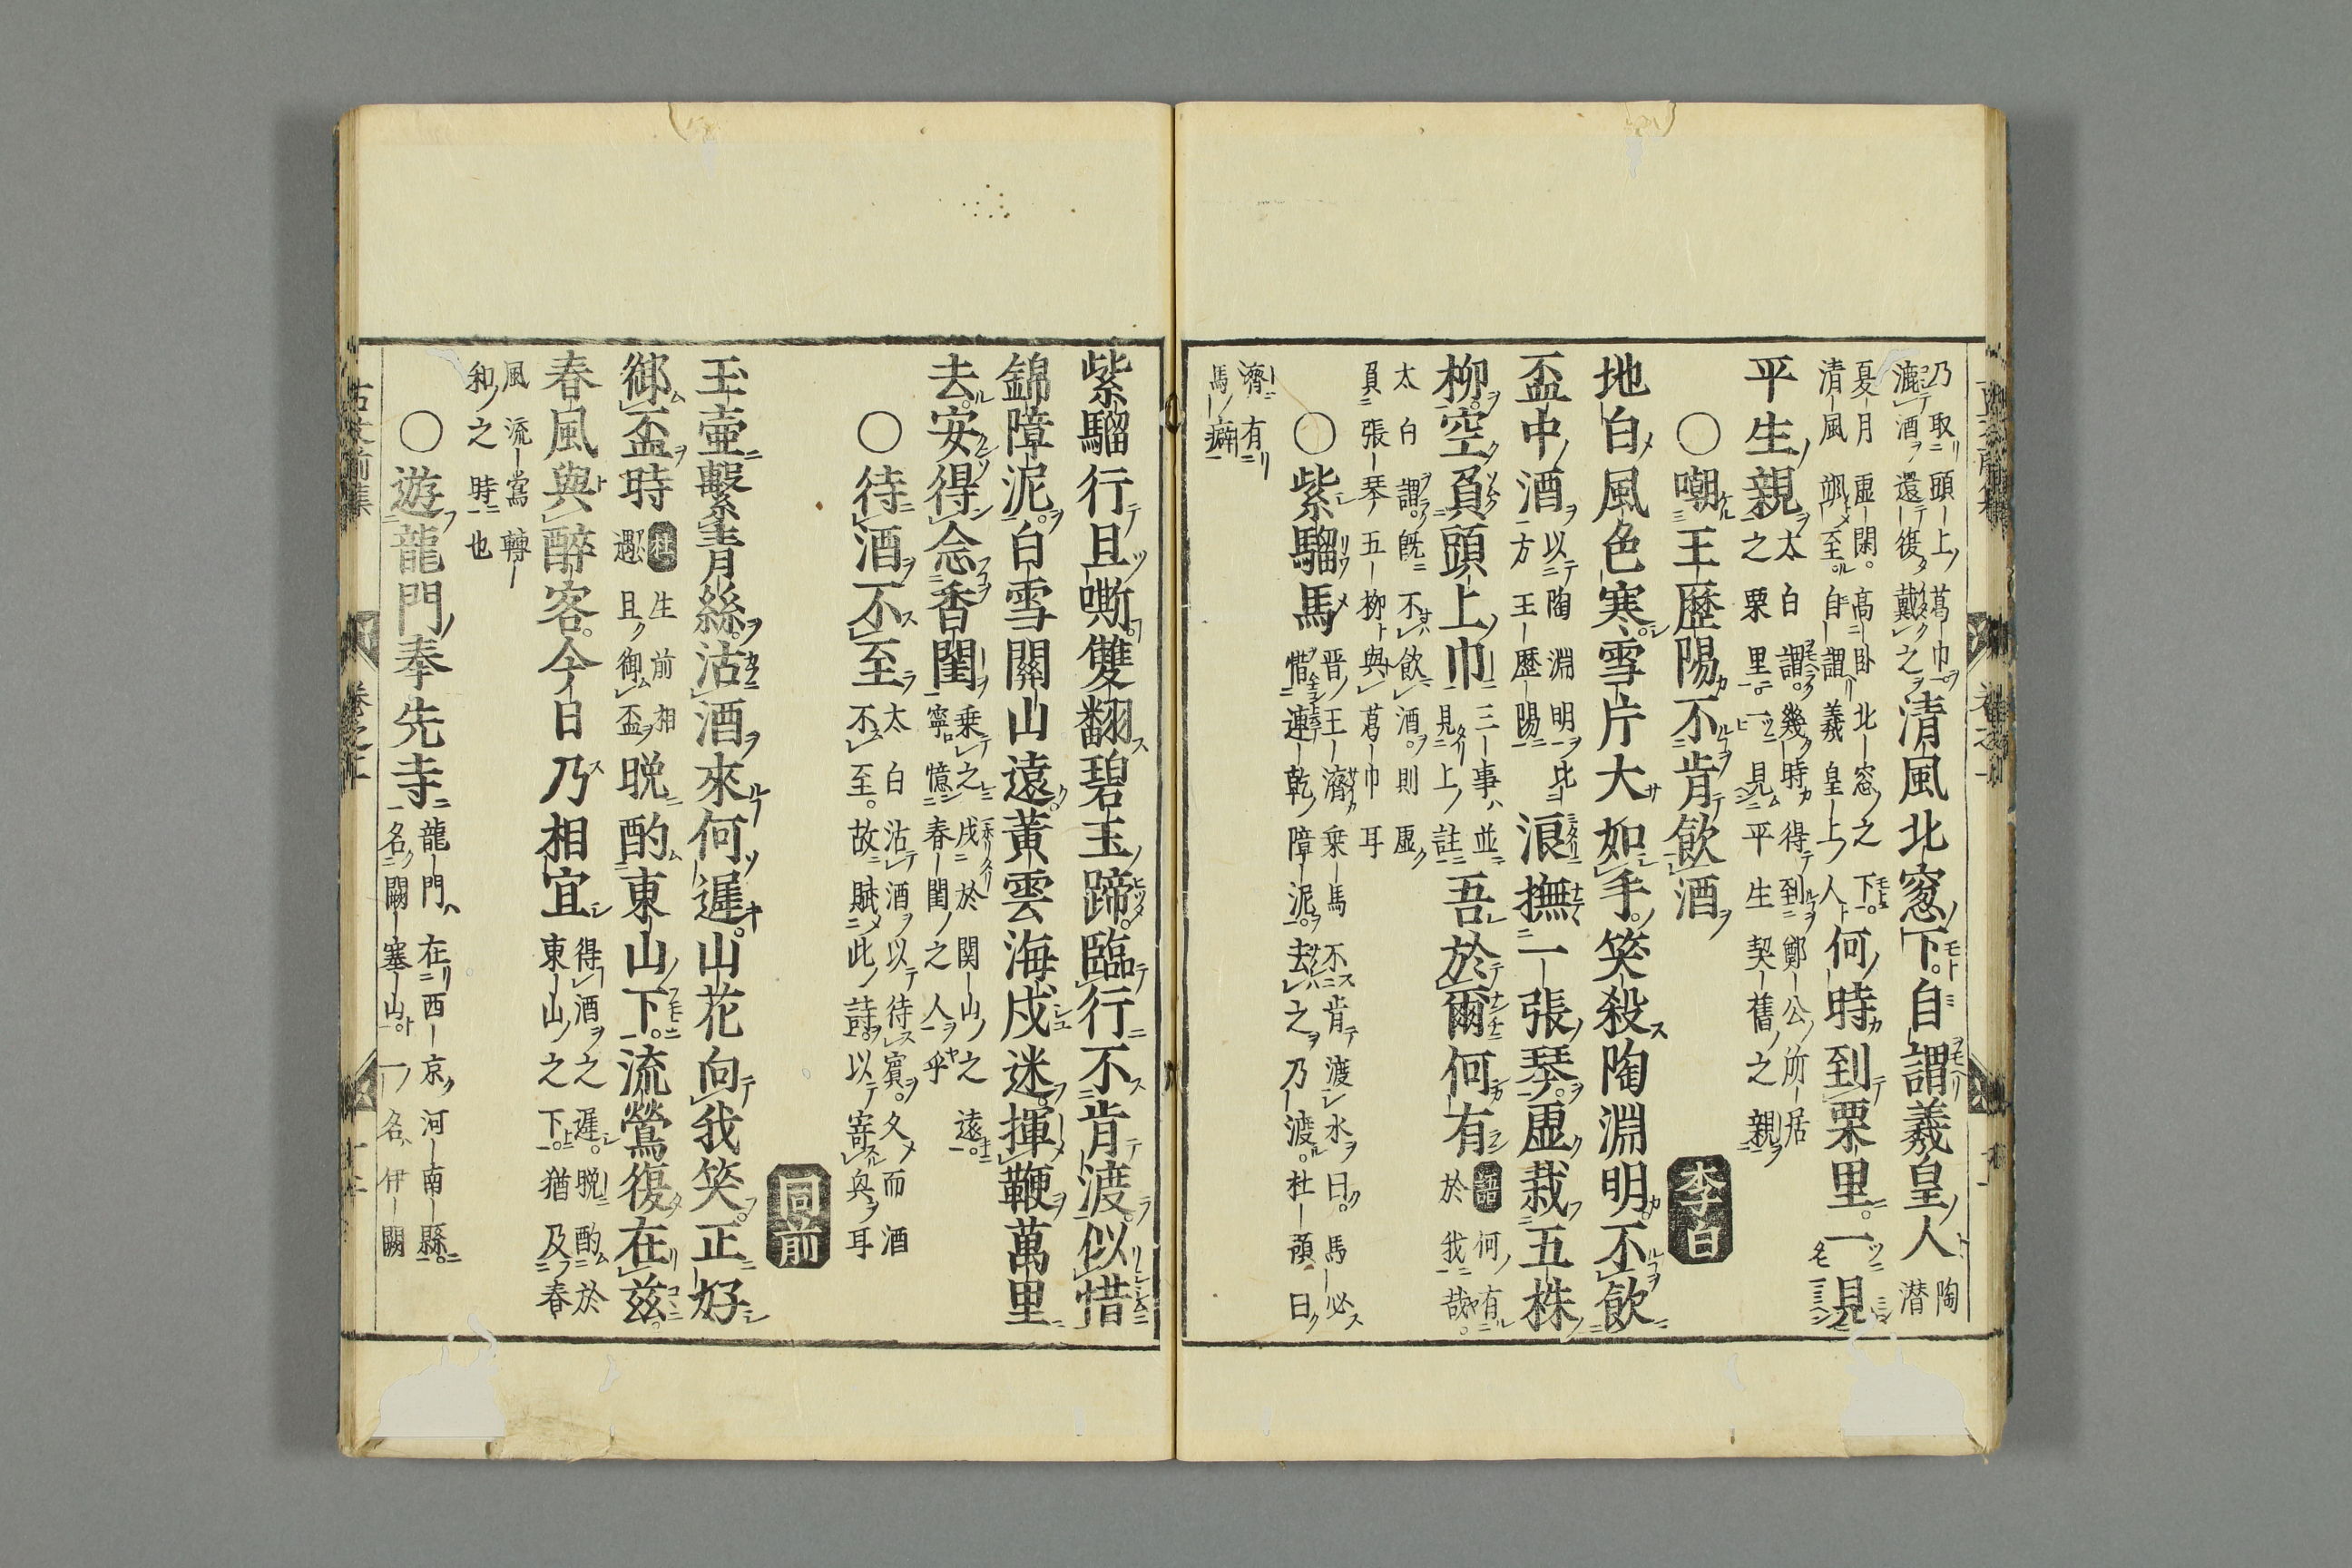 乃取頭上葛巾
漉酒還復戴之
清風北窓下自謂羲皇人
陶
潜
夏月虛閑高臥北窓之下
清風颯至自謂羲皇上人
何時到栗里一見
平生親
太白謂幾時得到鄭公所居
之栗里一見平生契舊之親
○嘲王歷陽不肯飲酒
李白
地白風色寒雪片大如手笑殺陶淵明不飲
盃中酒
以陶淵明比
方王歷陽
浪撫一張琴虛栽五株
柳空負頭上巾
三事並
見上註
吾於爾何有
語助何有
於我哉
太白謂既不飲酒則虛
負張琴五柳與葛巾耳
○紫騮馬
晋王濟乗馬不肯渡水曰馬必
惜連乾障泥去之乃渡杜預曰
濟有
馬癖
紫騮行且嘶雙翻碧玉蹄臨行不肯渡似惜
錦障泥白雪關山遠黃雲海戍迷揮鞭萬里
去安得念香閨
乗之戍於関山之遠
寧憶春閨之人乎
○待酒不至
太白沽酒以待賓久而酒
不至故賦此詩以寄興耳
同前
玉壷繫青絲沽酒來何遲山花向我笑正好
御盃時
杜生前相
遇且御盃
晩酌東山下流鶯復在茲
春風與醉客今日乃相宜
得酒之遲晩酌於
東山之下猶及春
風流鶯轉
和之時也
○遊龍門奉先寺
龍門在西京河南縣
名闕塞山一名伊闕